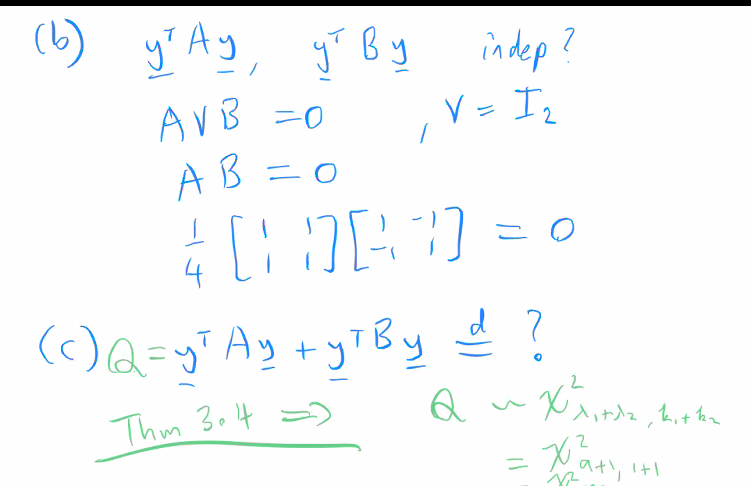 (b) yᵀ A y, yᵀ B y indep?
A V B = 0 , V = I₂
A B = 0
1/4 [1 1; 1 1] [1 -1; -1 1] = 0
(c) Q = yᵀ A y + yᵀ B y =ᵈ ?
Thm 3.4 ⇒ Q ~ χ²_{λ₁+λ₂, k₁+k₂}
= χ²_{a+1, 1+1}